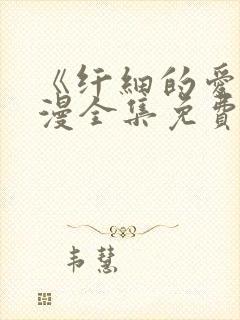 《纤细的爱
漫全集免费
韦慧